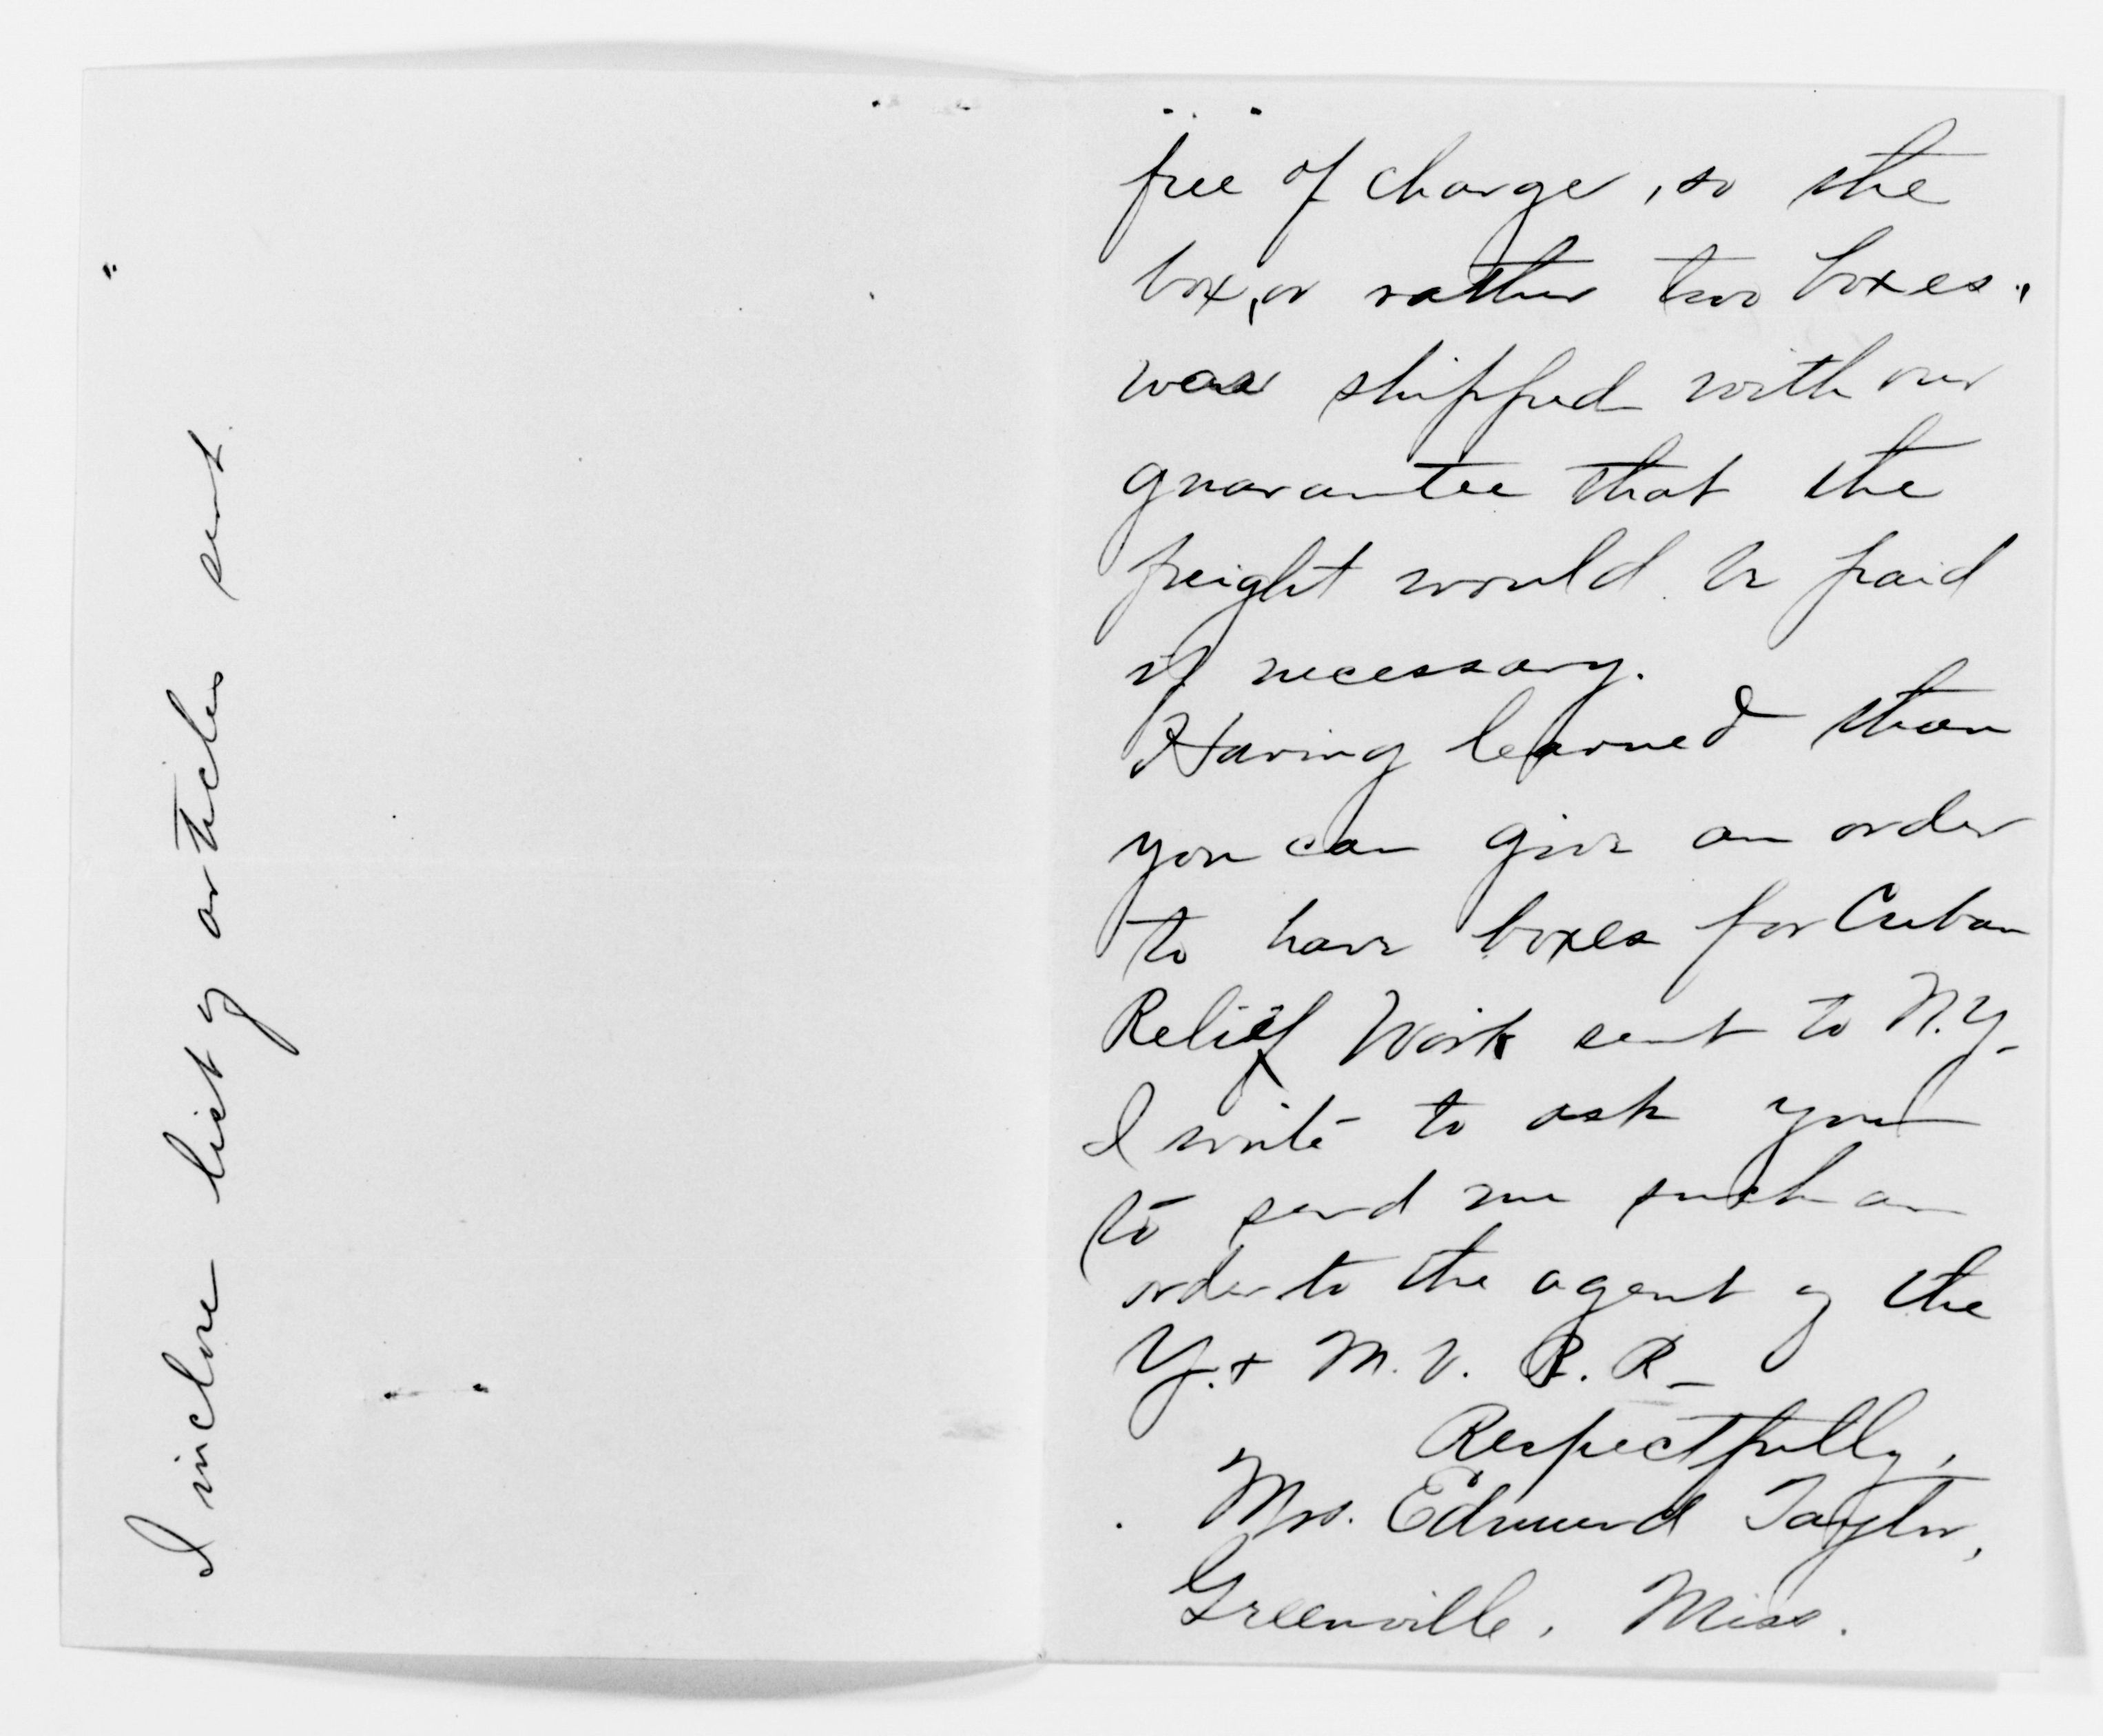 free of charge, so the
box, or rather two boxes,
was shipped with our
guarantee that the
freight would be paid
if necessary.
Having learned than
you can give an order
to have boxes for Cuban
Relief Work sent to N.Y_
I write to ask you
to send me such an
order to the agent of the
Y. & M. V. R. R_
Respectfully,
Mrs. Edmund Taylor,
Greenville, Miss.
I inclose list of articles sent